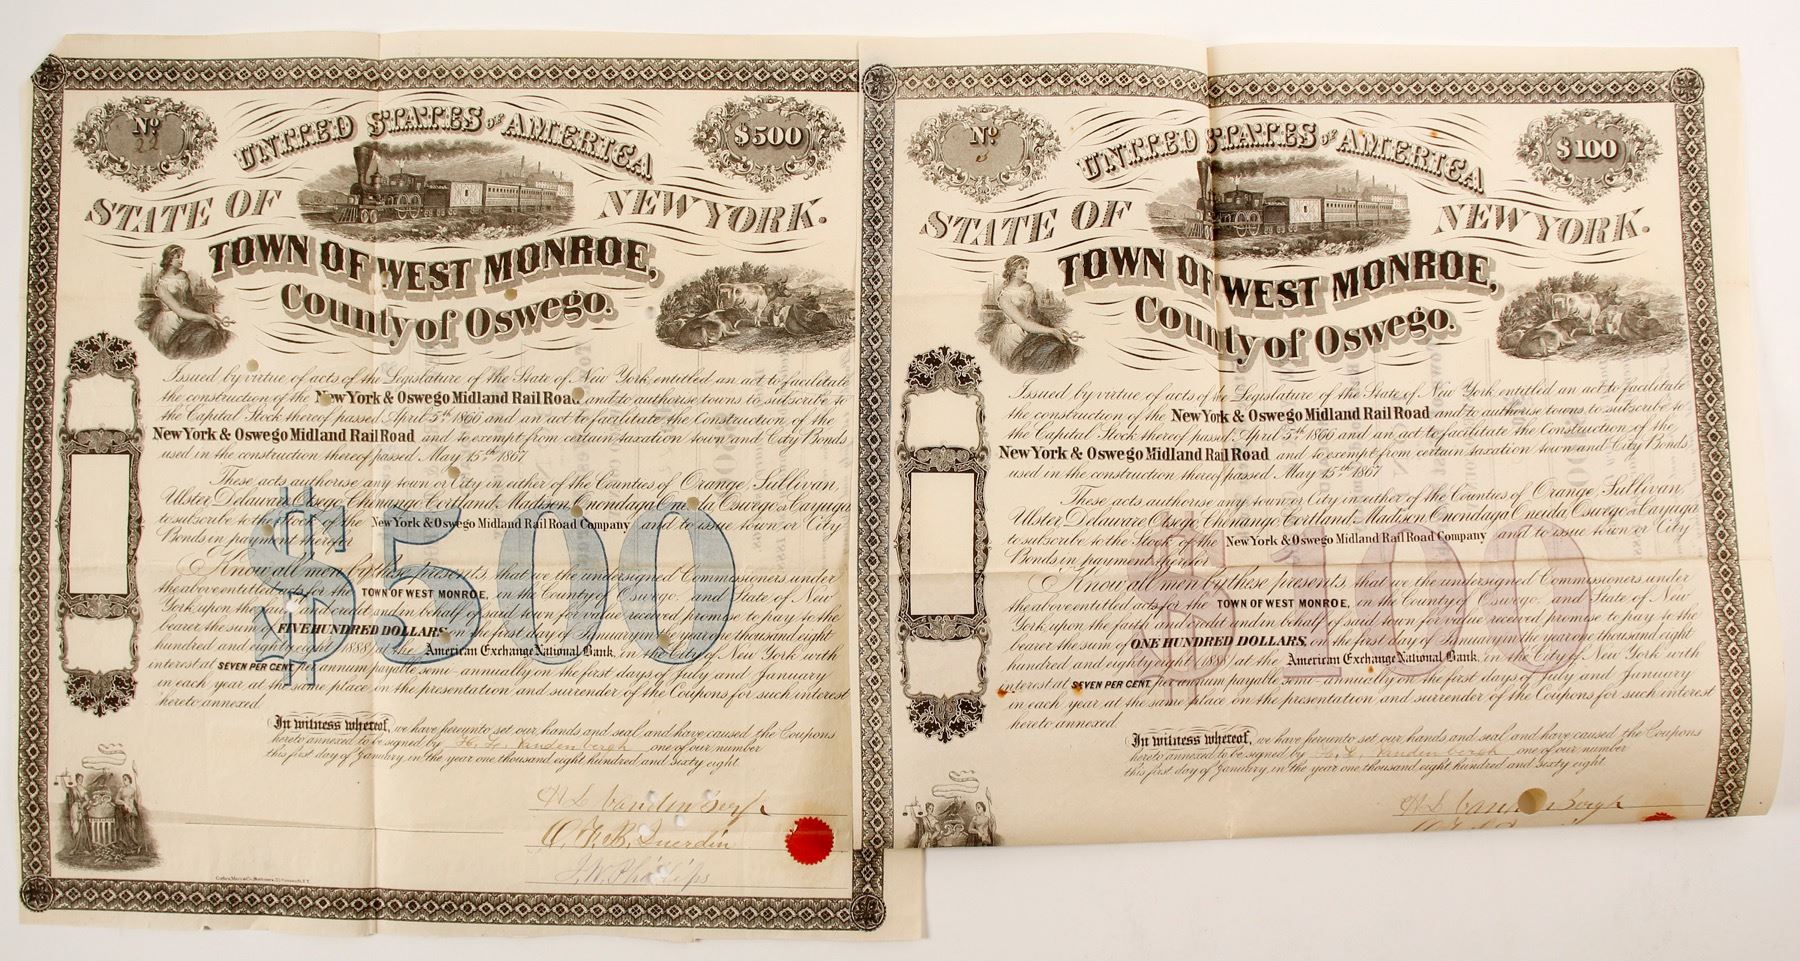 No
22
$500
UNITED STATES OF AMERICA
STATE OF NEW YORK.
TOWN OF WEST MONROE,
County of Oswego.
Issued by virtue of acts of the Legislature of the State of New York, entitled an act to facilitate
the construction of the New York & Oswego Midland Rail Road and to authorise towns to subscribe to
the Capital Stock thereof passed April 5th 1866 and an act to facilitate the Construction of the
New York & Oswego Midland Rail Road and to exempt from certain taxation town and City Bonds
used in the construction thereof passed May 15th 1867
These acts authorise any town or City in either of the Counties of Orange, Sullivan,
Ulster, Delaware, Otsego, Chenango, Cortland, Madison, Onondaga, Oneida, Oswego & Cayuga
to subscribe to the Stock of the New York & Oswego Midland Rail Road Company and to issue town or City
Bonds in payment therefor
$500
Know all men by these presents, that we the undersigned Commissioners under
the above entitled acts for the TOWN OF WEST MONROE, in the County of Oswego and State of New
York upon the faith and credit and in behalf of said town for value received promise to pay to the
bearer the sum of FIVE HUNDRED DOLLARS, on the first day of January in the year one thousand eight
hundred and eighty eight 1888 at the American Exchange National Bank, in the City of New York with
interest at SEVEN PER CENT, per annum payable semi-annually on the first days of July and January
in each year at the same place on the presentation and surrender of the Coupons for such interest
hereto annexed.
In witness whereof, we have hereunto set our hands and seal and have caused the Coupons
hereto annexed to be signed by H. L. Vandenbergh one of our number
this first day of January, in the year one thousand eight hundred and sixty eight
H L Vandenbergh
J. W. Phillips
No
$100
UNITED STATES OF AMERICA
STATE OF NEW YORK.
TOWN OF WEST MONROE,
County of Oswego.
Issued by virtue of acts of the Legislature of the State of New York, entitled an act to facilitate
the construction of the New York & Oswego Midland Rail Road and to authorise towns to subscribe to
the Capital Stock thereof passed April 5th 1866 and an act to facilitate the Construction of the
New York & Oswego Midland Rail Road and to exempt from certain taxation town and City Bonds
used in the construction thereof passed May 15th 1867
These acts authorise any town or City in either of the Counties of Orange, Sullivan,
Ulster, Delaware, Otsego, Chenango, Cortland, Madison, Onondaga, Oneida, Oswego & Cayuga
to subscribe to the Stock of the New York & Oswego Midland Rail Road Company and to issue town or City
Bonds in payment therefor
$100
Know all men by these presents, that we the undersigned Commissioners under
the above entitled acts for the TOWN OF WEST MONROE, in the County of Oswego and State of New
York upon the faith and credit and in behalf of said town for value received promise to pay to the
bearer the sum of ONE HUNDRED DOLLARS, on the first day of January in the year one thousand eight
hundred and eighty eight 1888 at the American Exchange National Bank, in the City of New York with
interest at SEVEN PER CENT, per annum payable semi-annually on the first days of July and January
in each year at the same place on the presentation and surrender of the Coupons for such interest
hereto annexed.
In witness whereof, we have hereunto set our hands and seal and have caused the Coupons
hereto annexed to be signed by H. L. Vandenbergh one of our number
this first day of January, in the year one thousand eight hundred and sixty eight
H L Vandenbergh